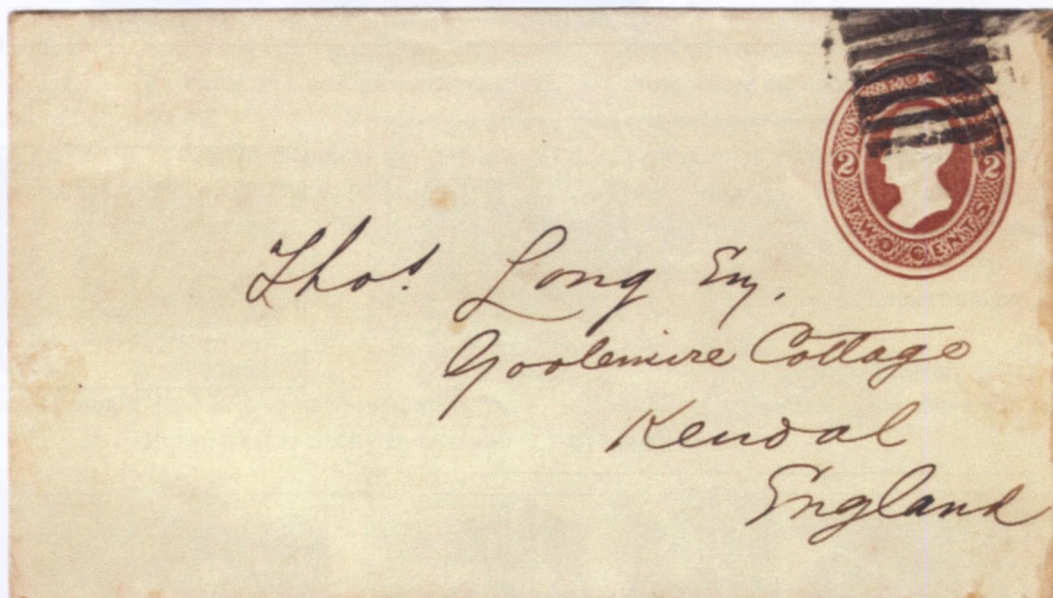 TWO CENTS
2 2
Thos. Long Esq.
Goolemire Cottage
Kendal
England